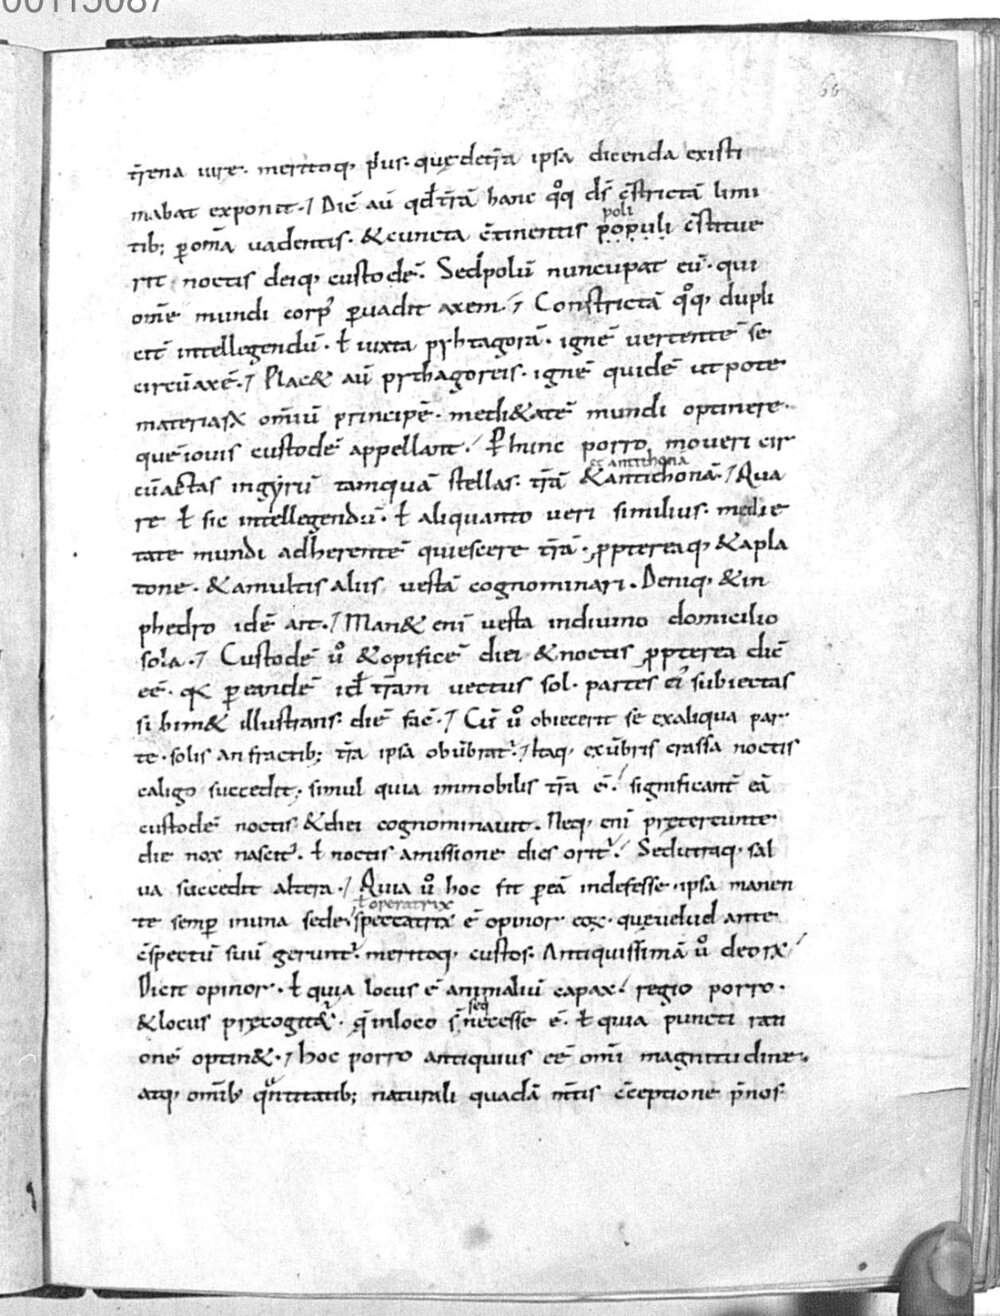 00115087
66
t̄rena iure. meritoq; p̄us. quę det̄ra ipsa dicenda existi
mabat exponit. Dic̄ aū qđ t̄rā hanc q̊q; ds̄ c̄strictā limi
poli
tib; p̱ om̄a uadentis. &cuncta c̄tinentis populi c̄stitue
rit noctis deiq; custodē. Sed polū nuncupat eū. qui
om̄e mundi corp' p̱uadit axem. Constrictā q̊q; dupli
cit̄ intellegendū. ł iuxta pyhtagorā. ignē uertentē se
circū axē. Plac& aū pythagoreis. ignē quidē utpote
materiaꝝ om̄iū principē. medi&atē mundi optinere.
quē iouis custodē appellant. P̱ hunc porro moueri cir
et antithona
cūactas in gyrū tamquā stellas. t̄rā & antichonā. Qua
re ł sic intellegendū. ł aliquanto ueri similius. medie
tate mundi adherentē quiescere t̄rā. ꝓpterea q; & a pla
tone. & a multis aliis uestā cognominari. Deniq; & in
phedro idē ait. Man& eni uesta in diuino domicilio
sola. Custodē u̅o & opificē diei & noctis ꝓpterea dic̄
eē. qꝛ p̱ eandē id t̄ram uectus sol. partes ei subiectas
sibim& illustrans. diē fac̄. Cū u̅o obiecerit se ex aliqua par
te. solis anfractib; t̄ra ipsa obūbrat. Itaq; ex ūbris crassa noctis
caligo succedit. simul quia immobilis t̄ra ē. significant eā
custodē noctis & diei cognominauit. Neq; eni prętereunte
die nox nascit. ł noctis amissione dies orit. Sed utraq; sal
ua succedit altera. Quia u̅o hoc fit p̱ eā indefesse. ipsa manen
ł operatrix
te semp̱ in una sede. speccatrix ē opinor eoꝝ. que uelud ante
c̄spectū suū gerunt. meritoq; custos. Antiquissimā u̅o deorꝝ
Dicit opinor. ł quia locus ē animaliū capax. regio porro.
seq
& locus pręcogit&. q̄ in loco s̄ necesse ē. ł quia puncti rati
onē optin&. hoc porro antiquius eē om̄i magnitudine.
atq; om̄ib' q̄ntitatib; naturali quadā m̄tis c̄ceptione p̄nos